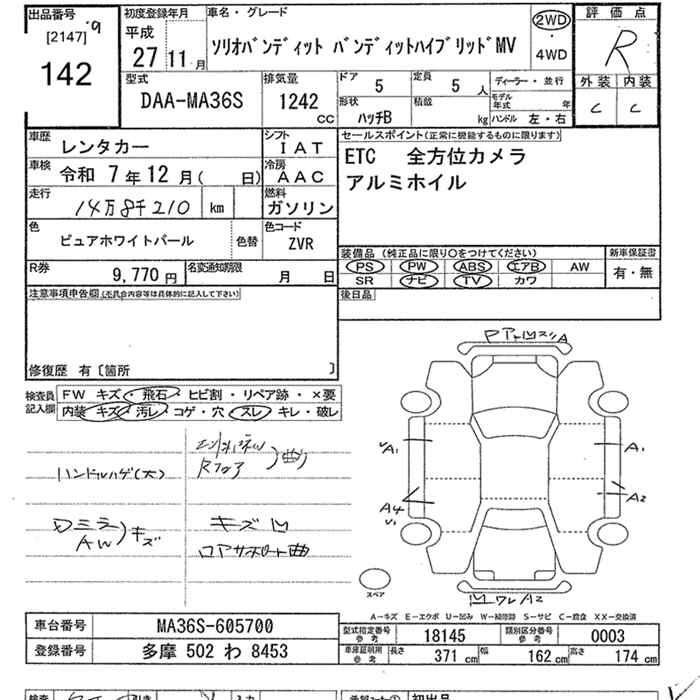 出品番号
[2147]
142
初度登録年月
平成
27 11 月
車名・グレード
ソリオバンディット バンディットハイブリッドMV
2WD
・
4WD
評価点
R
外装 内装
C C
型式
DAA-MA36S
排気量
1242
CC
ドア
5
定員
5 人
ディーラー・並行
形状
ハッチB
積載
kg
モデル年式 年
ハンドル 左・右
車歴
レンタカー
シフト
IAT
車検
令和 7年12月( 日)
冷房
AAC
走行
14万8千210 km
燃料
ガソリン
色
ピュアホワイトパール
色替
色コード
ZVR
R券
9,770 円
名変通知期限
月 日
セールスポイント(正常に機能するものに限ります)
ETC 全方位カメラ
アルミホイル
装備品 (純正品に限り○をつけてください)
PS PW ABS エアB AW
SR ナビ TV カワ
新車保証書
有・無
後日品
注意事項申告欄(不具合内容等は具体的に記入して下さい)
修復歴 有〔箇所 〕
検査員
記入欄
FW キズ・飛石・ヒビ割・リペア跡・×要
内装 キズ 汚レ・コゲ・穴 スレ キレ・破レ
ハンドルハゲ(大)
ミラー
AW
キズ
Rフロア
曲
キズ凹
コアサポート曲
A1
A1
A4
A2
A2
スペア
A-キズ E-エクボ U-凹み W-補修跡 S-サビ C-腐食 XX-交換済
車台番号
MA36S-605700
登録番号
多摩 502 わ 8453
型式指定番号
参考
18145
類別区分番号
参考
0003
車庫証明用
参考
長さ 371 cm 幅 162 cm 高さ 174 cm